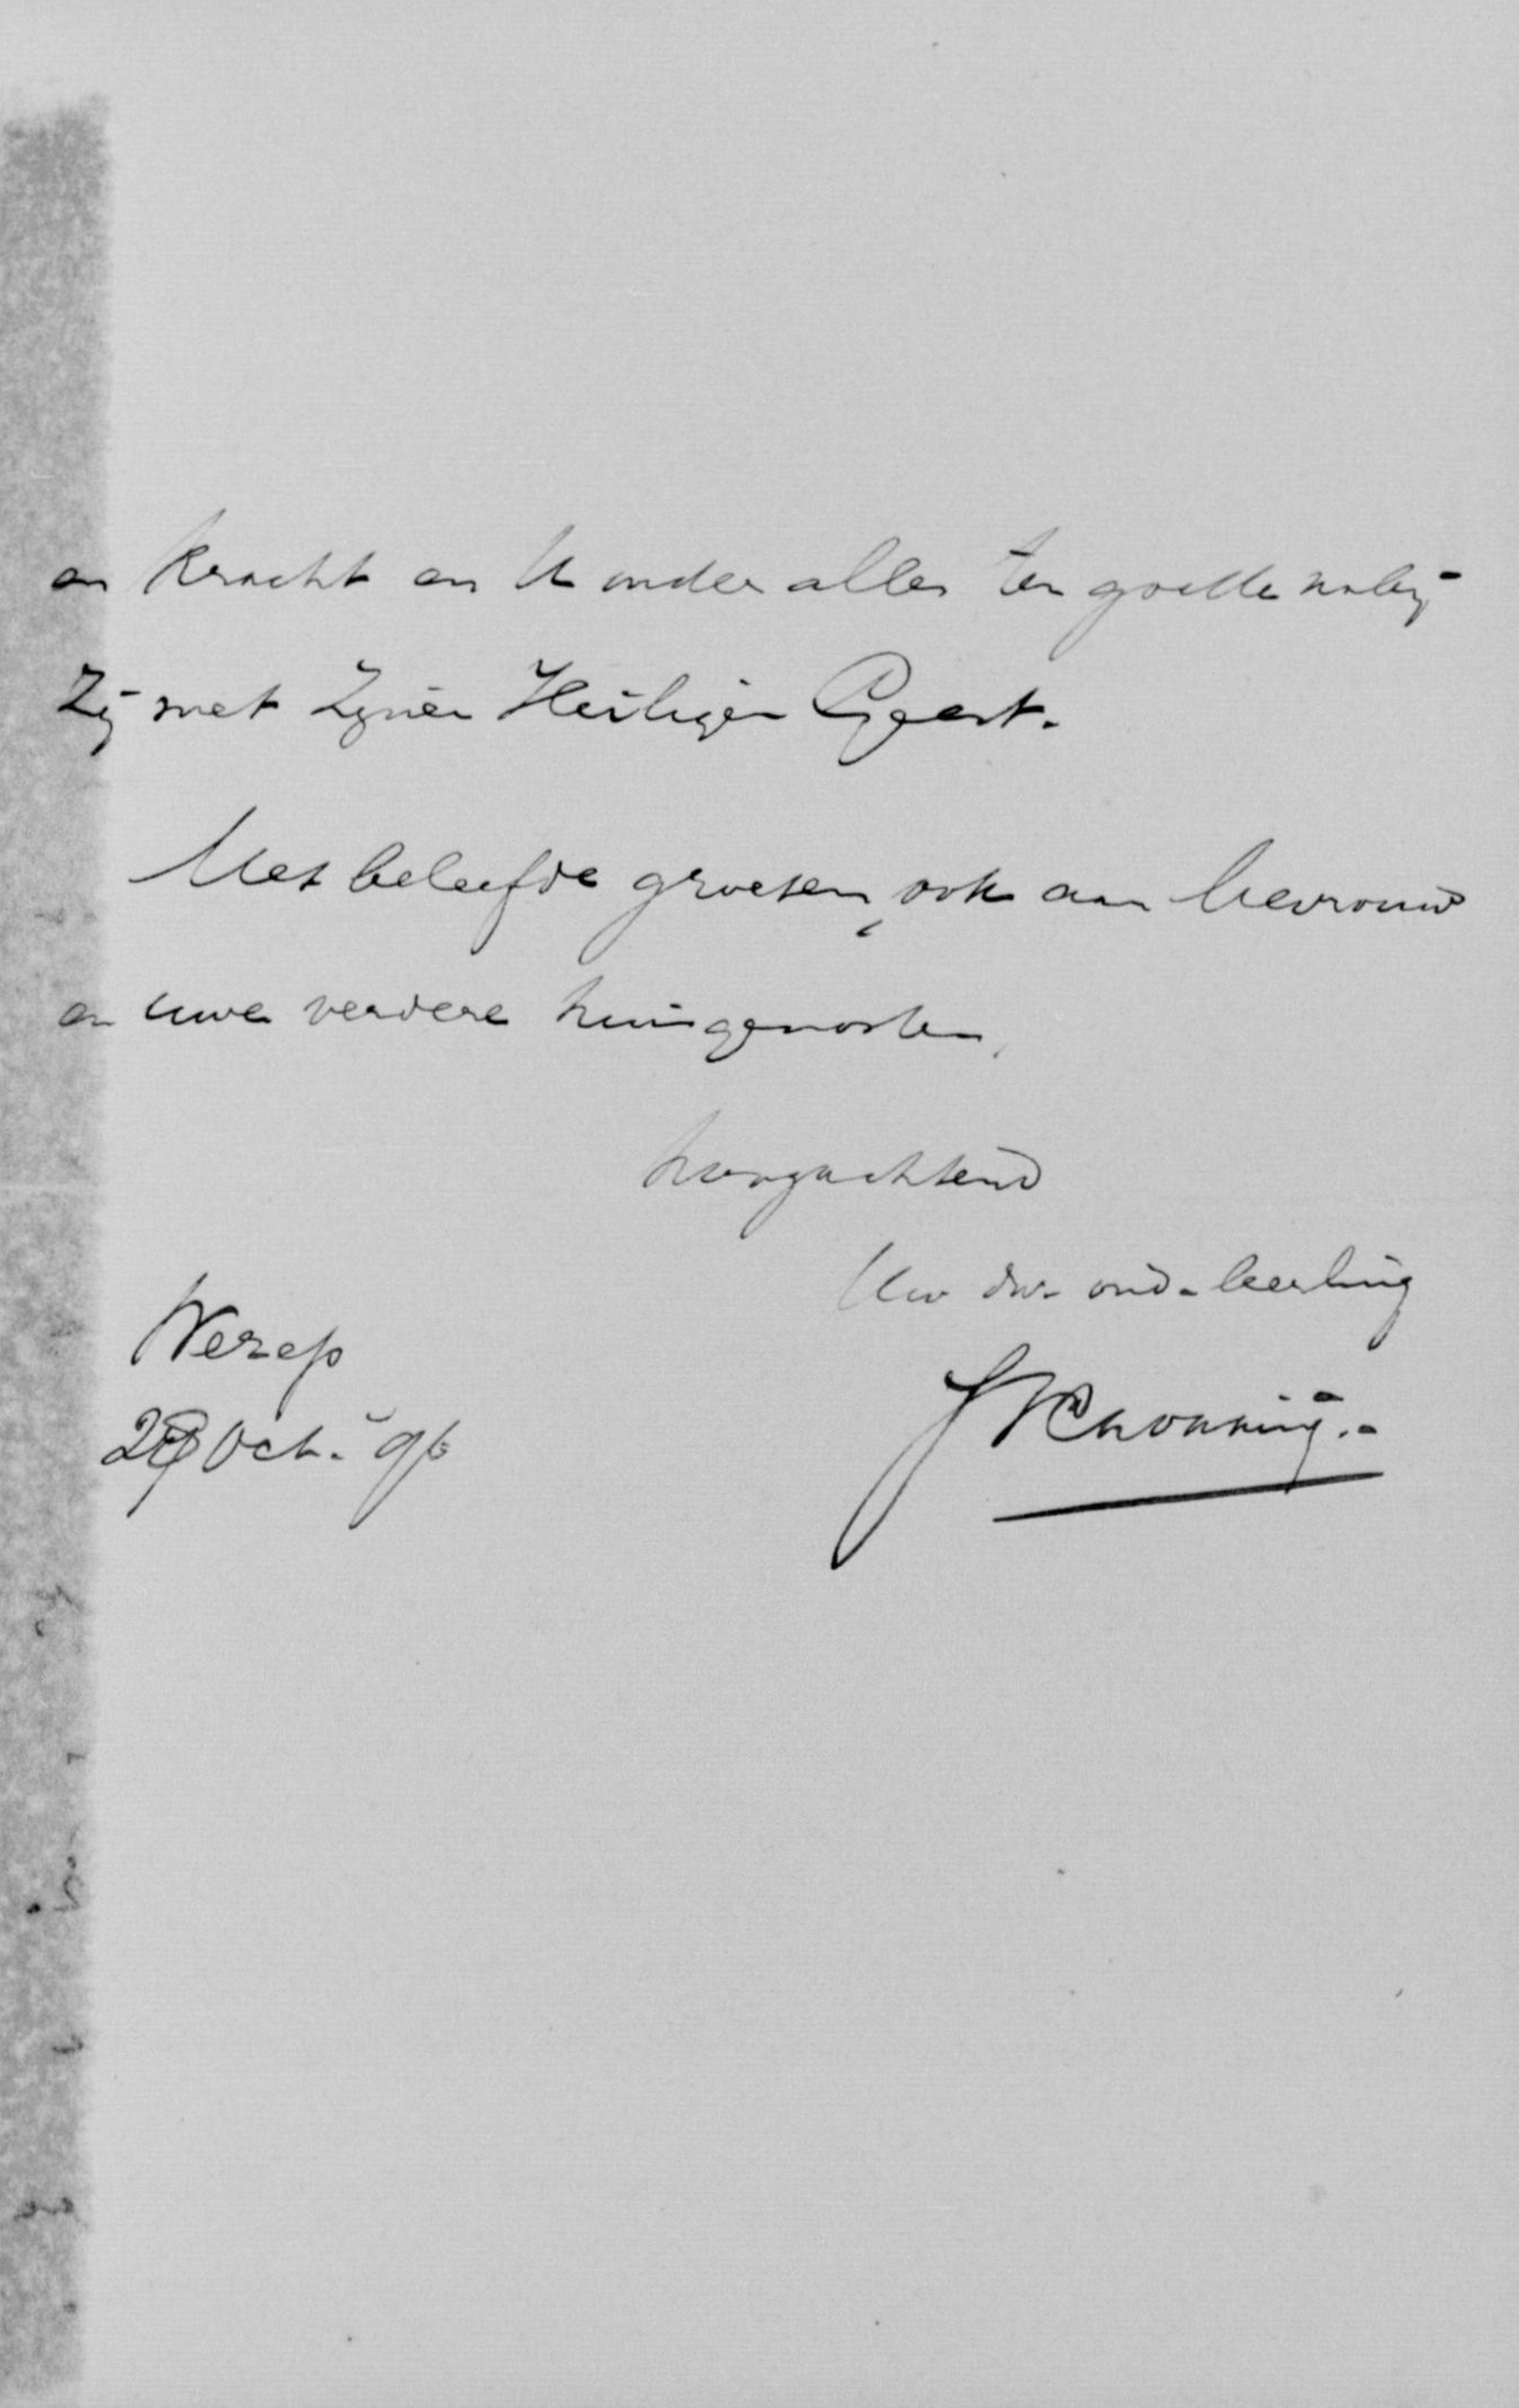 en kracht en U onder alles ten goede nabij
zij met Zijnen Heiligen Geest.
Met beleefde groeten, ook aan Mevrouw
en uwe verdere huisgenooten,
hoogachtend
Uw dw. oud-leerling
Nerep
Oct. '96